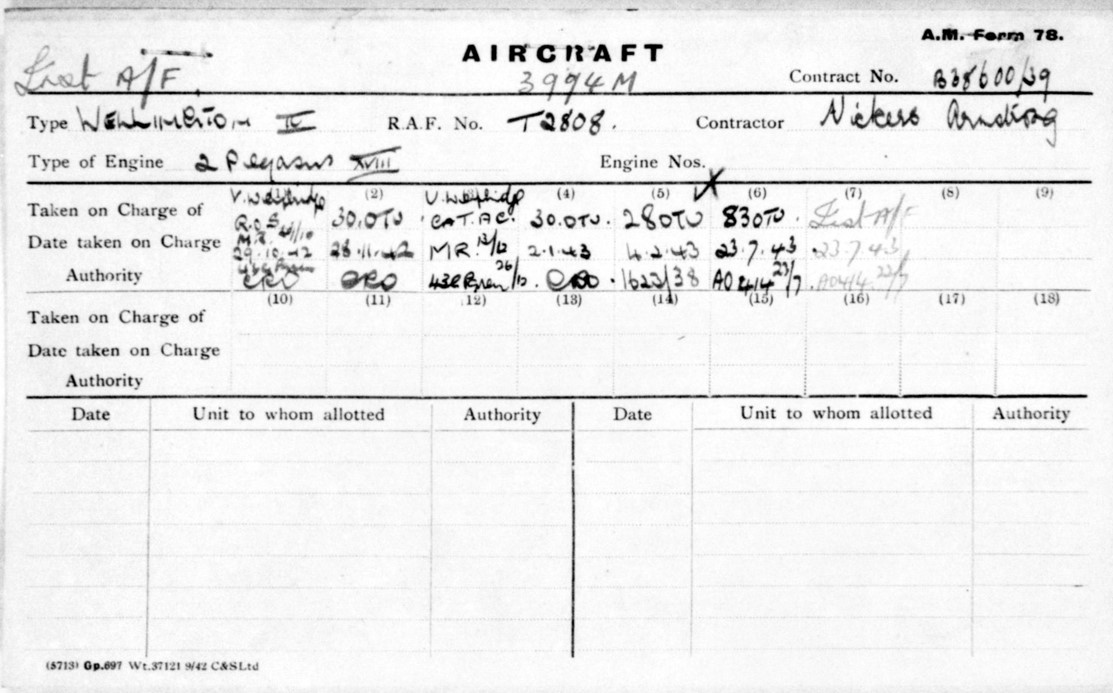 A.M. Form 78.
AIRCRAFT
A/F 3994M Contract No. B38600/39
Type WELLINGTON IC R.A.F. No. T2808. Contractor Vickers Armstrong
Type of Engine 2 Pegasus XVIII Engine Nos.
(2) (4) (5) (6) (7) (8) (9)
Taken on Charge of R.O.S. 30.OTU CAT.AC. 30.OTU 28OTU 83OTU. A/F
Date taken on Charge 29.10.42 28.11.42 M R. 2.1.43 4.2.43 23.7.43 23.7.43
Authority 1622/38 AO 414 22/7 AO414 22/7
(10) (11) (12) (13) (14) (15) (16) (17) (18)
Taken on Charge of
Date taken on Charge
Authority
Date Unit to whom allotted Authority Date Unit to whom allotted Authority
(5713) Gp.697 Wt.37121 9/42 C&SLtd